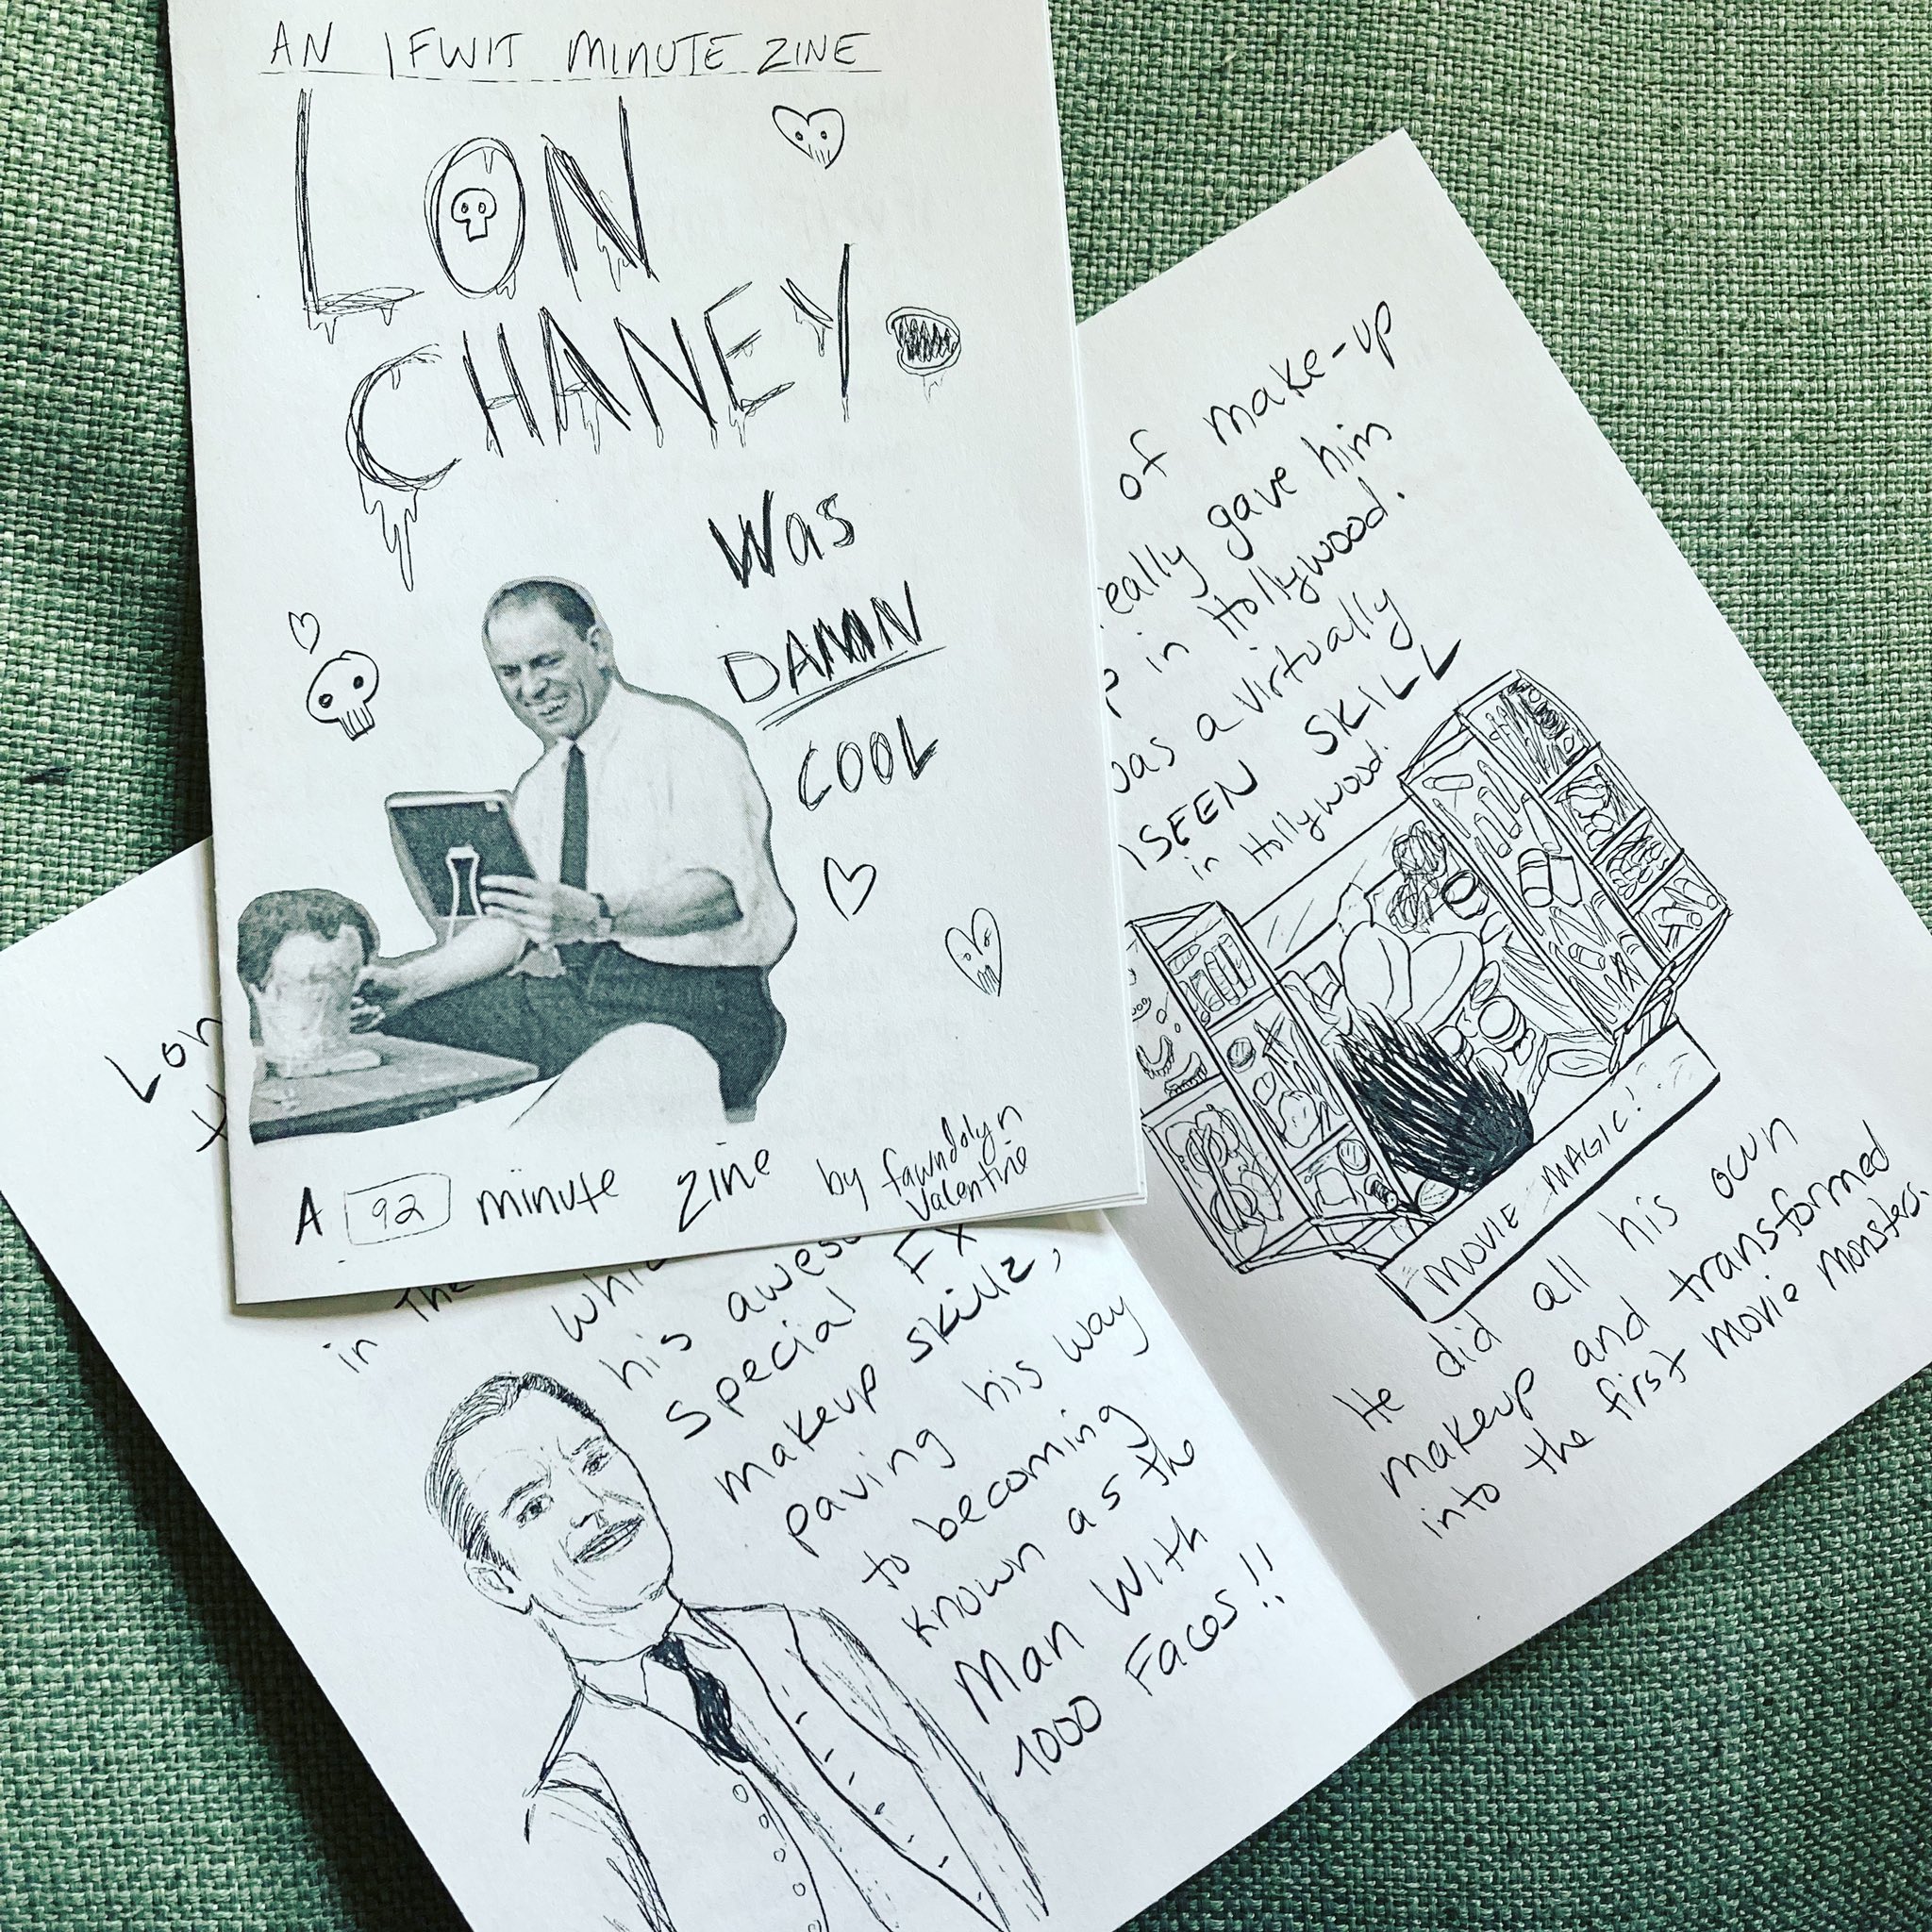 AN IFWIT MINUTE ZINE
LON
CHANEY
Was
DAMN
COOL
A 92 minute zine by fawndolyn
Valentine
Lon
in the
whi
his awes
special FX
makeup skillz,
paving his way
to becoming
known as the
Man With
1000 Faces!!
of make-up
eally gave him
p in Hollywood.
was a virtually
SEEN SKILL
in Hollywood.
MOVIE MAGIC!
He did all his own
makeup and transformed
into the first movie monsters.